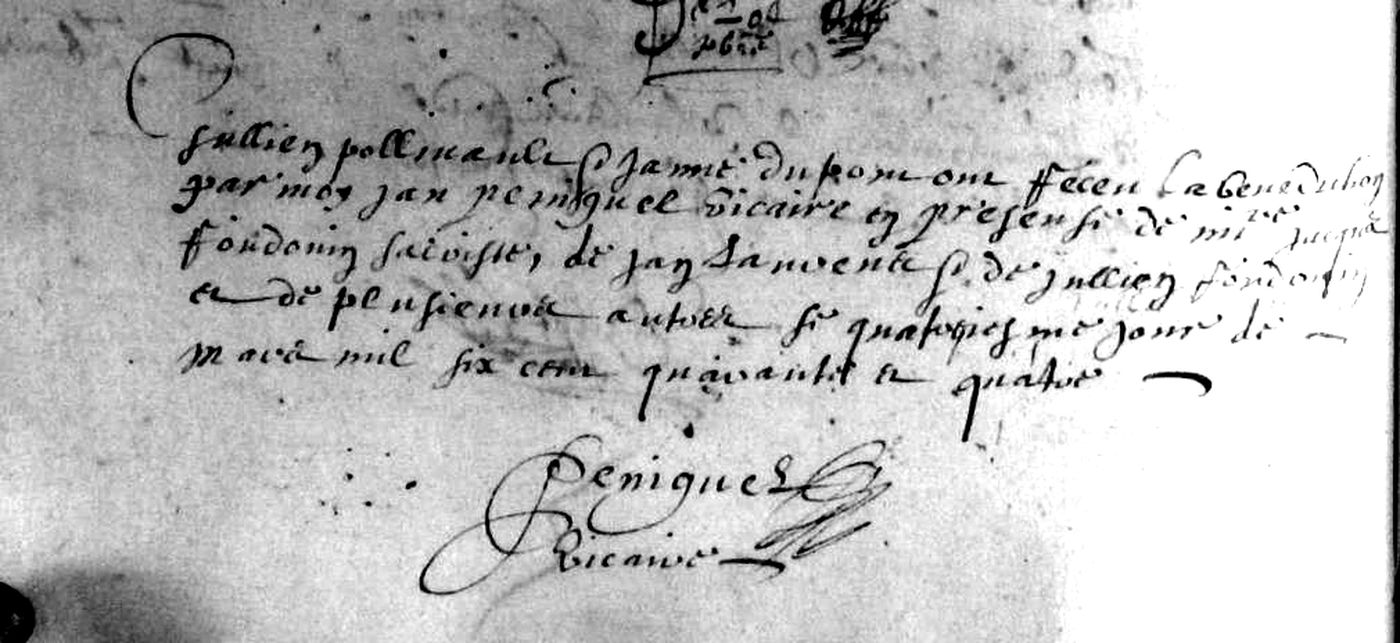 Jullien pollinault & Janne dupont ont Receu La benediction
par moy Jan peniguel vicaire en presense de mire Jacques
Roudouin sacriste, de Jan Lauvent & de Jullien Roudouin
et de plusieurs autres se quatoriesme jour de
mars mil six cent quarante et quatre
Peniguel
Vicaire